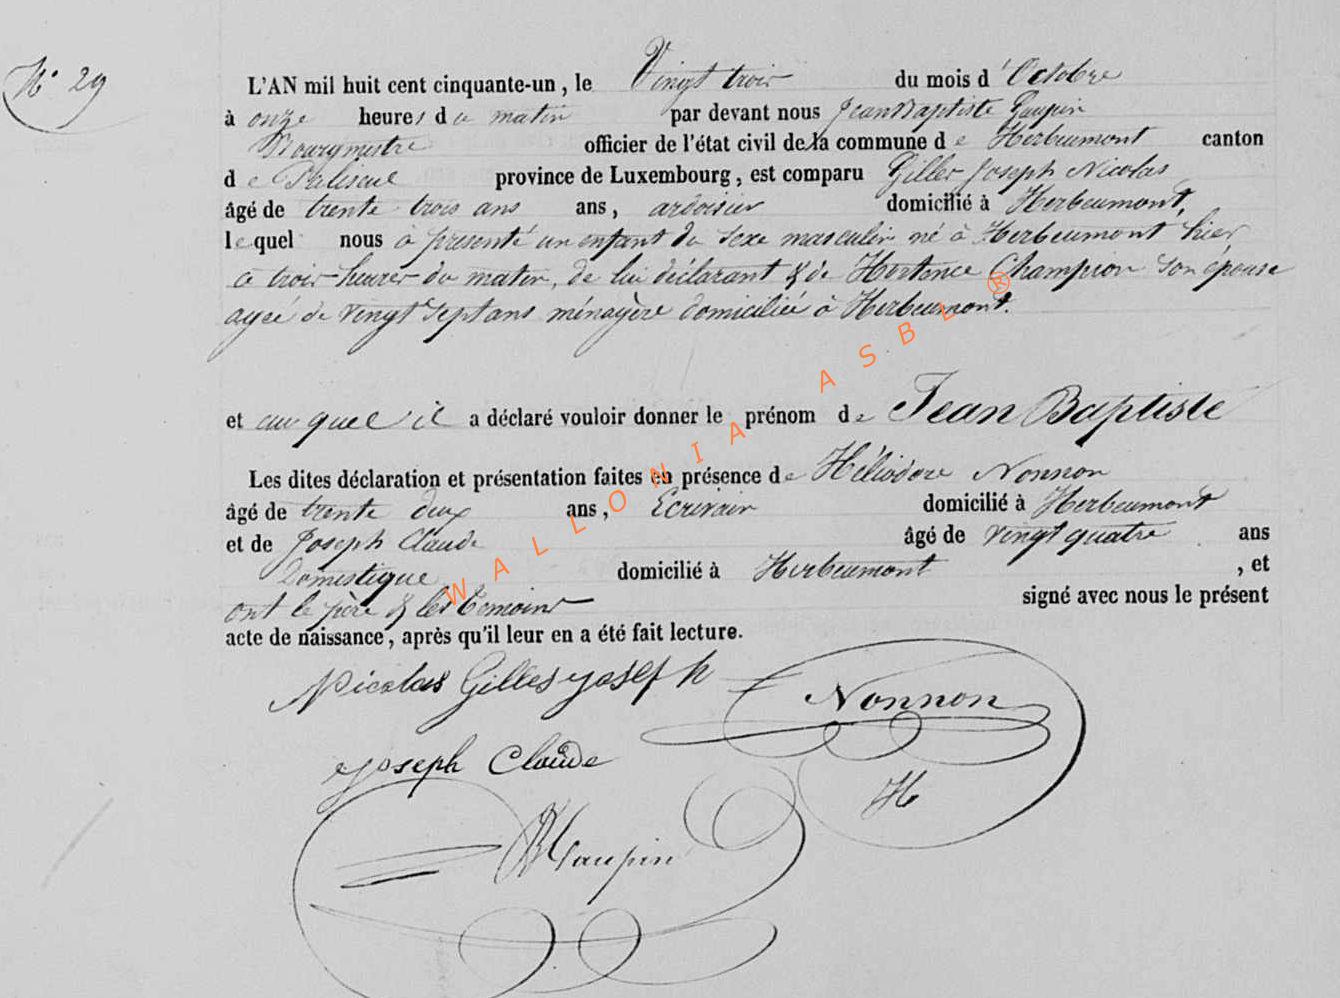 N° 29
L'AN mil huit cent cinquante-un, le Vingt trois du mois d'Octobre
à onze heures du matin par devant nous Jean Baptiste Gaupin
Bourgmestre officier de l'état civil de la commune de Herbeumont canton
de Paliseul province de Luxembourg, est comparu Gilles Joseph Nicolas
âgé de trente trois ans ans, ardoisier domicilié à Herbeumont,
lequel nous à présenté un enfant du sexe masculin né à Herbeumont hier
a trois heures du matin, de lui déclarant & de Hortence Champion son épouse
agée de vingt sept ans ménagère domiciliée à Herbeumont.
et auquel il a déclaré vouloir donner le prénom de Jean Baptiste
Les dites déclaration et présentation faites en présence de Héliodore Nonnon
âgé de trente deux ans, Ecrivain domicilié à Herbeumont
et de Joseph Claude âgé de vingt quatre ans
Domestique domicilié à Herbeumont, et
ont le père & les temoins signé avec nous le présent
acte de naissance, après qu'il leur en a été fait lecture.
Nicolas Gilles joseph Nonnon
joseph Claude H
Gaupin
WALLONIA ASBL ®